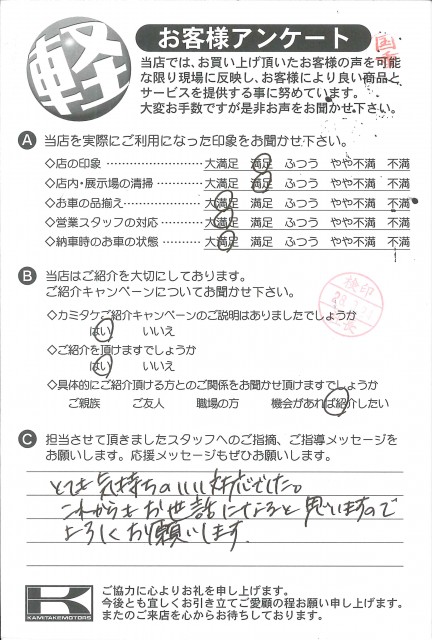 軽
お客様アンケート
当店では、お買い上げ頂いたお客様の声を可能
な限り現場に反映し、お客様により良い商品と
サービスを提供する事に努めています。
大変お手数ですが是非お声をお聞かせ下さい。
A 当店を実際にご利用になった印象をお聞かせ下さい。
◇店の印象 大満足 満足 ふつう やや不満 不満
◇店内・展示場の清掃 大満足 満足 ふつう やや不満 不満
◇お車の品揃え 大満足 満足 ふつう やや不満 不満
◇営業スタッフの対応 大満足 満足 ふつう やや不満 不満
◇納車時のお車の状態 大満足 満足 ふつう やや不満 不満
B 当店はご紹介を大切にしております。
ご紹介キャンペーンについてお聞かせ下さい。
◇カミタケご紹介キャンペーンのご説明はありましたでしょうか
はい いいえ
◇ご紹介を頂けますでしょうか
はい いいえ
◇具体的にご紹介頂ける方とのご関係をお聞かせ頂けますでしょうか
ご親族 ご友人 職場の方 機会があれば紹介したい
C 担当させて頂きましたスタッフへのご指摘、ご指導メッセージを
お願いします。応援メッセージもぜひお願いします。
とても気持ちのいい対応でした。
これからもお世話になると思いますので
よろしくお願いします.
K
KAMITAKEMOTORS
ご協力に心よりお礼を申し上げます。
今後とも宜しくお引き立てご愛顧の程お願い申し上げます。
またのご来店を心からお待ちしております。